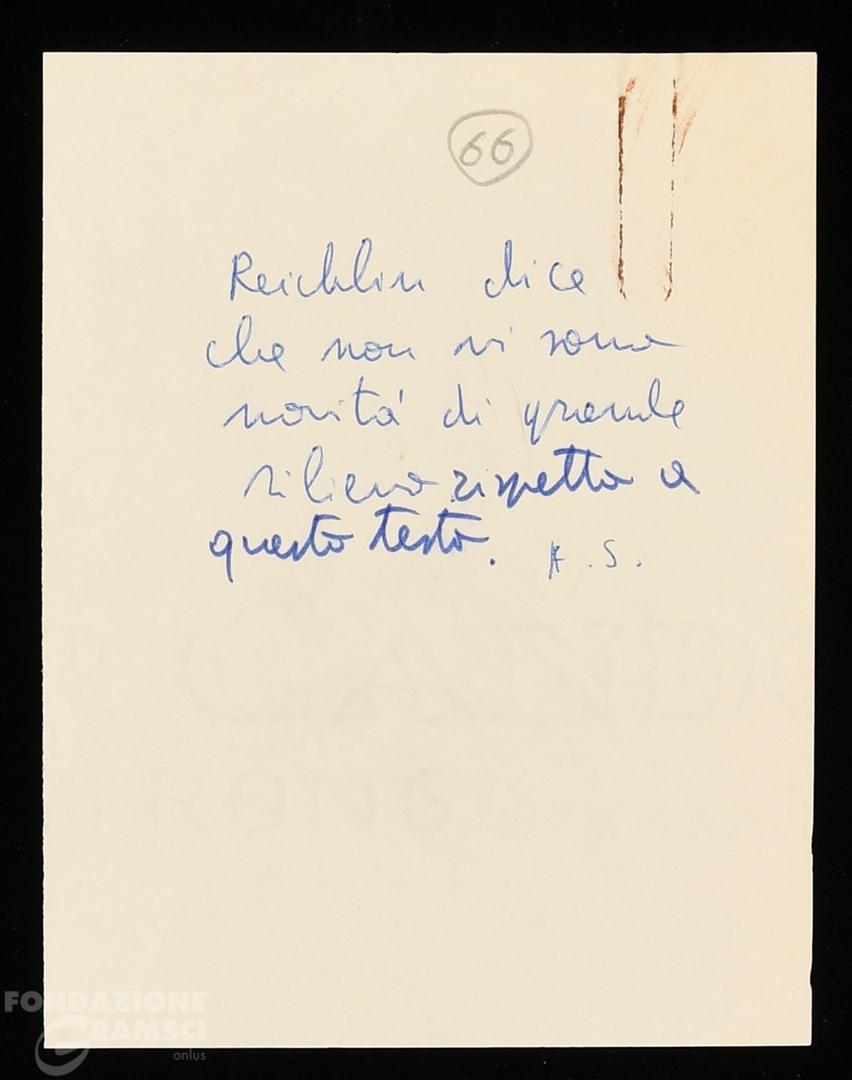 66
Reichlin dice
che non vi sono
novità di grande
rilievo rispetto a
questo testo. A.S.
FONDAZIONE
GRAMSCI
onlus